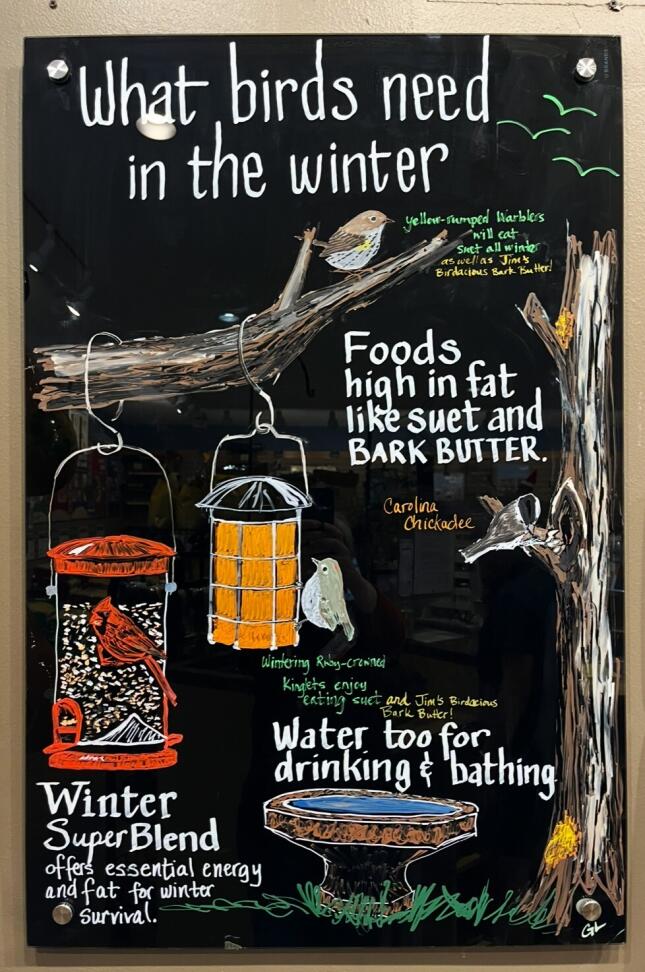 What birds need
in the winter
Yellow-rumped Warblers
will eat
suet all winter
as well as Jim's
Birdacious Bark Butter!
Foods
high in fat
like suet and
BARK BUTTER.
Carolina
Chickadee
Wintering Ruby-crowned
Kinglets enjoy
eating suet and Jim's Birdacious
Bark Butter!
Water too for
drinking & bathing
Winter
SuperBlend
offers essential energy
and fat for winter
survival.
GL